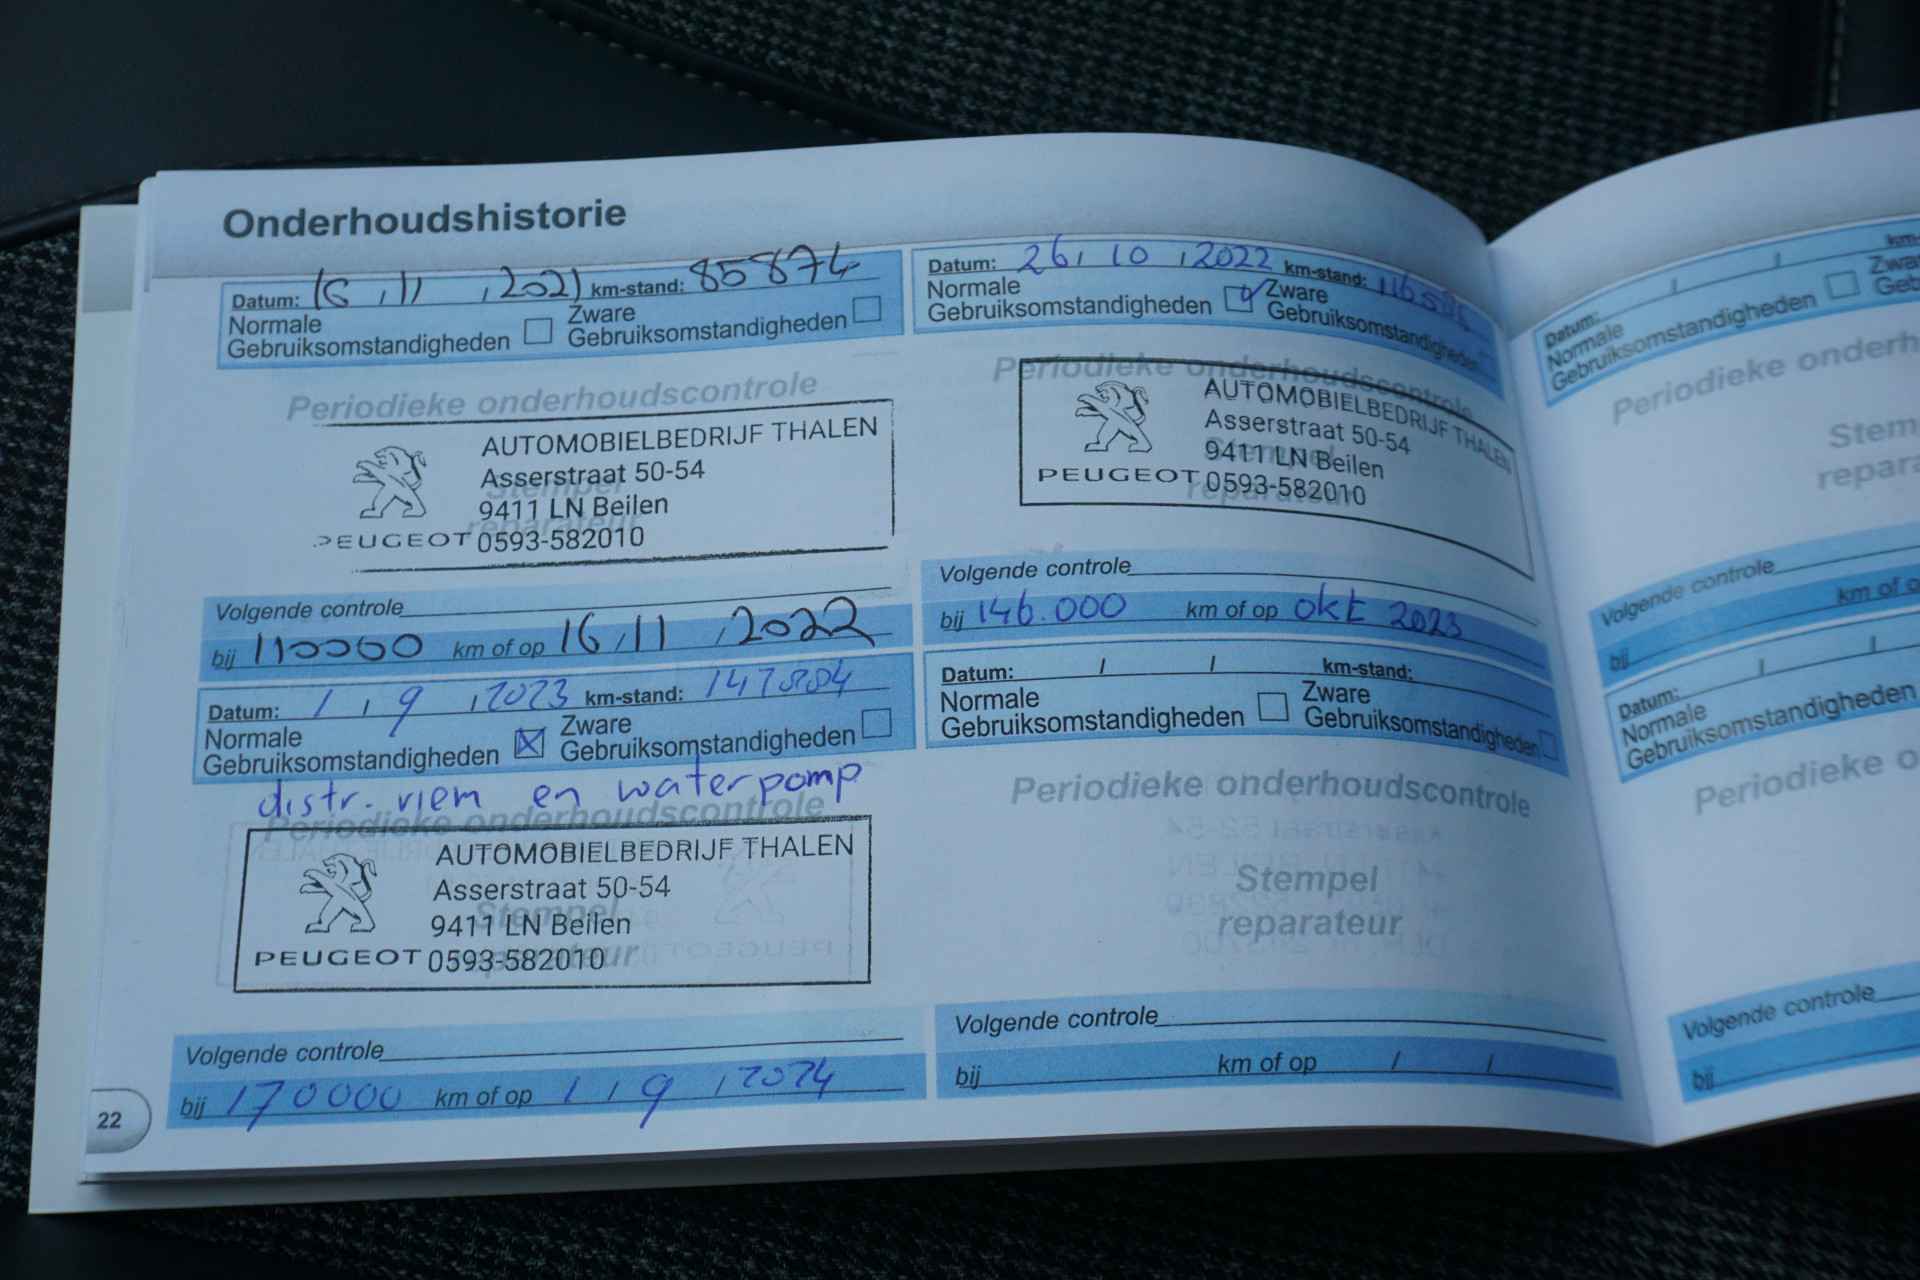 Onderhoudshistorie
Datum: 16 / 11 / 2021 km-stand: 85874
Normale
Gebruiksomstandigheden
Zware
Gebruiksomstandigheden
Periodieke onderhoudscontrole
AUTOMOBIELBEDRIJF THALEN
Asserstraat 50-54
9411 LN Beilen
PEUGEOT 0593-582010
Stempel
reparateur
Volgende controle
bij 110000 km of op 16 / 11 / 2022
Datum: 26 / 10 / 2022 km-stand:
Normale
Gebruiksomstandigheden
Zware
Gebruiksomstandigheden
Periodieke onderhoudscontrole
AUTOMOBIELBEDRIJF THALEN
Asserstraat 50-54
9411 LN Beilen
PEUGEOT 0593-582010
Stempel
reparateur
Volgende controle
bij 146.000 km of op okt 2023
Datum: 1 / 9 / 2023 km-stand:
Normale
Gebruiksomstandigheden
Zware
Gebruiksomstandigheden
distr. riem en waterpomp
Periodieke onderhoudscontrole
AUTOMOBIELBEDRIJF THALEN
Asserstraat 50-54
9411 LN Beilen
PEUGEOT 0593-582010
Stempel
reparateur
Volgende controle
bij 170000 km of op 1 / 9 / 2024
Datum: / / km-stand:
Normale
Gebruiksomstandigheden
Zware
Gebruiksomstandigheden
Periodieke onderhoudscontrole
Stempel
reparateur
Volgende controle
bij km of op / /
22
Datum: / / km-
Normale
Gebruiksomstandigheden
Zwa
Geb
Periodieke onderh
Stem
repara
Volgende controle
bij km of o
Datum: / /
Normale
Gebruiksomstandigheden
Periodieke o
Volgende controle
bij